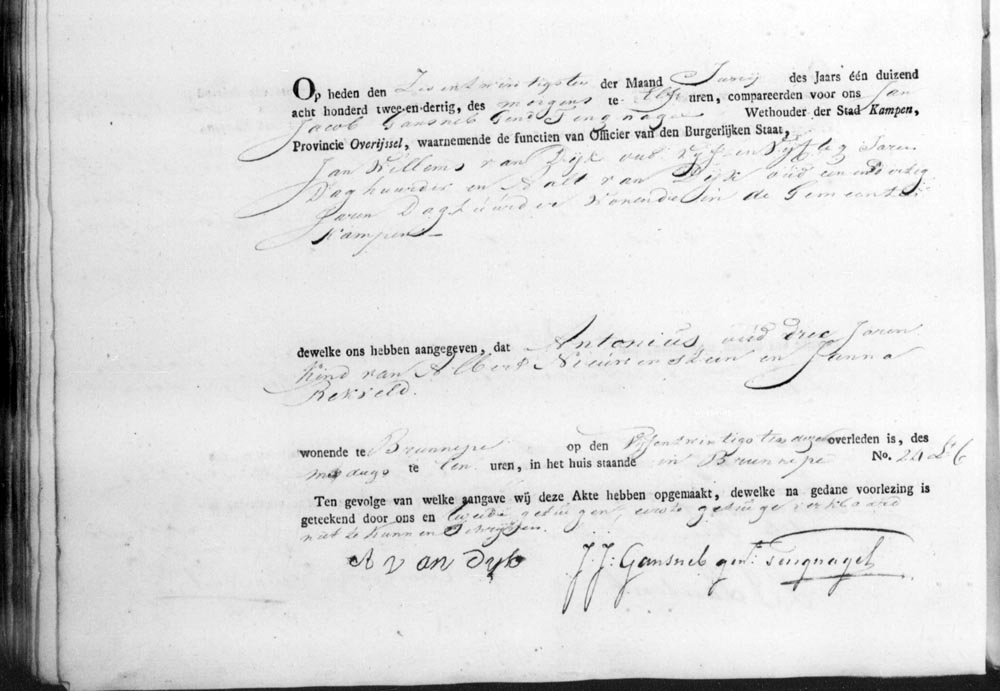 Op heden den Zesentwintigsten der Maand Junij des Jaars één duizend
acht honderd twee-en-dertig, des morgens te Elf uren, compareerden voor ons Jan
Jacob Gansneb Gend Tengnagel Wethouder der Stad Kampen,
Provincie Overijssel, waarnemende de functien van Officier van den Burgerlijken Staat,
Jan Willems van Dijk oud Vijf en Vijftig Jaren
Daghuurder en Aalt van Dijk oud een en dertig
Jaren Daghuurder Wonende in de Gemeente
Kampen
dewelke ons hebben aangegeven, dat Antonius, oud drie Jaren
kind van Albert Nieuwenstein en Janna
wonende te Brunnepe op den Vijfentwintigsten dezer overleden is, des
middags te een uren, in het huis staande in Brunnepe No. 24
Ten gevolge van welke aangave wij deze Akte hebben opgemaakt, dewelke na gedane voorlezing is
geteekend door ons en tweede getuigen, eerste getuige verklaard
niet te kunnen Schrijven.
A van Dyk J: J: Gansneb gen:d Tengnagel